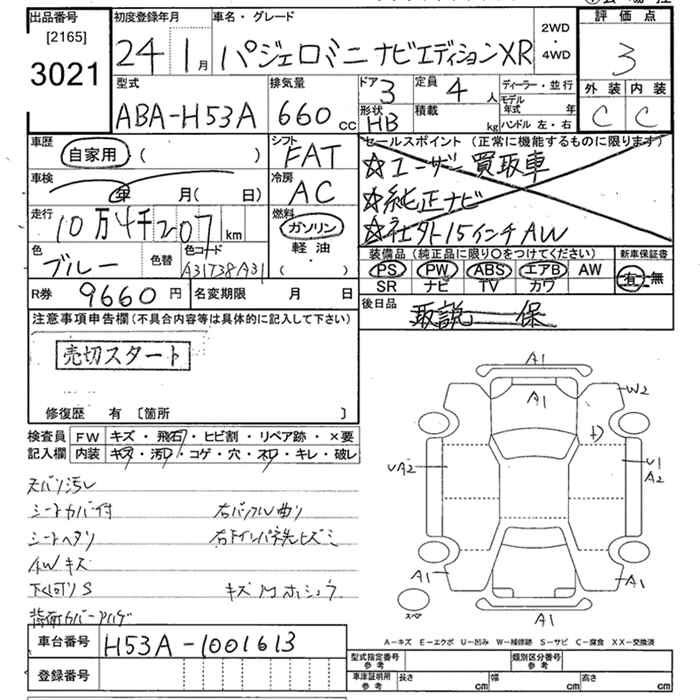 出品番号
[2165]
3021
初度登録年月
24 1 月
車名・グレード
パジェロミニ ナビエディションXR
2WD
・
4WD
評 価 点
3
外 装 内 装
C C
型式
ABA-H53A
排気量
660 cc
ドア 3
定員 4 人
形状 HB
積載 kg
ディーラー・並行
モデル年式 年
ハンドル 左・右
車歴
自家用 ( )
シフト
FAT
セールスポイント (正常に機能するものに限ります)
☆ユーザー買取車
☆純正ナビ
☆社外15インチAW
車検
年 月( 日)
冷房
AC
走行
10万4千207 km
燃料
ガソリン
軽 油
( )
色
ブルー
色替
色コード
A31T38A31
装備品 (純正品に限り○をつけてください)
PS PW ABS エアB AW
SR ナビ TV カワ
新車保証書
有・無
R券 9660 円
名変期限 月 日
後日品
取説 保
注意事項申告欄 (不具合内容等は具体的に記入して下さい)
売切スタート
修復歴 有 [箇所 ]
検査員
記入欄
FW キズ・飛石・ヒビ割・リペア跡・×要
内装 キズ・汚レ・コゲ・穴・スレ・キレ・破レ
天バリ汚レ
シートカバー付
シートヘタリ
AWキズ
下廻りS
右バックル曲り
キズ Mホシュウ
A1
A1
W2
UA2
U1
A2
A1
A1
A1
スペア
車台番号
H53A-1001613
登録番号
A-キズ E-エクボ U-凹み W-補修跡 S-サビ C-腐食 XX-交換済
型式指定番号
参 考
類別区分番号
参 考
車庫証明用
参 考
長さ cm
幅 cm
高さ cm